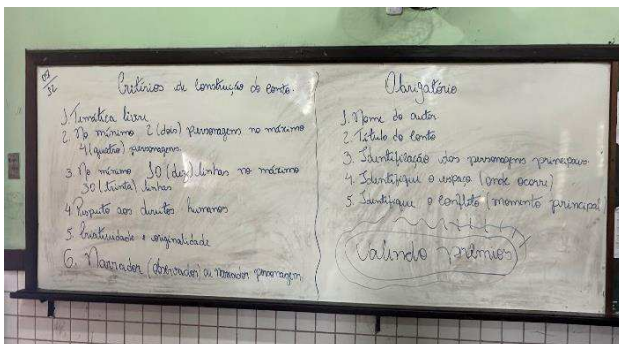 09/12
Critérios de construção do conto.
1. Temática livre
2. No mínimo 2 (dois) personagens no máximo
4 (quatro) personagens.
3. No mínimo 10 (dez) linhas no máximo
30 (trinta) linhas
4. Respeito aos direitos humanos
5. Criatividade e originalidade
6. Narrador (observador) ou narrador personagem.
Obrigatório
1. Nome do autor
2. Título do conto
3. Identificação dos personagens principais
4. Identifique o espaço (onde ocorre)
5. Identifique o conflito (momento principal)
Valendo prêmios